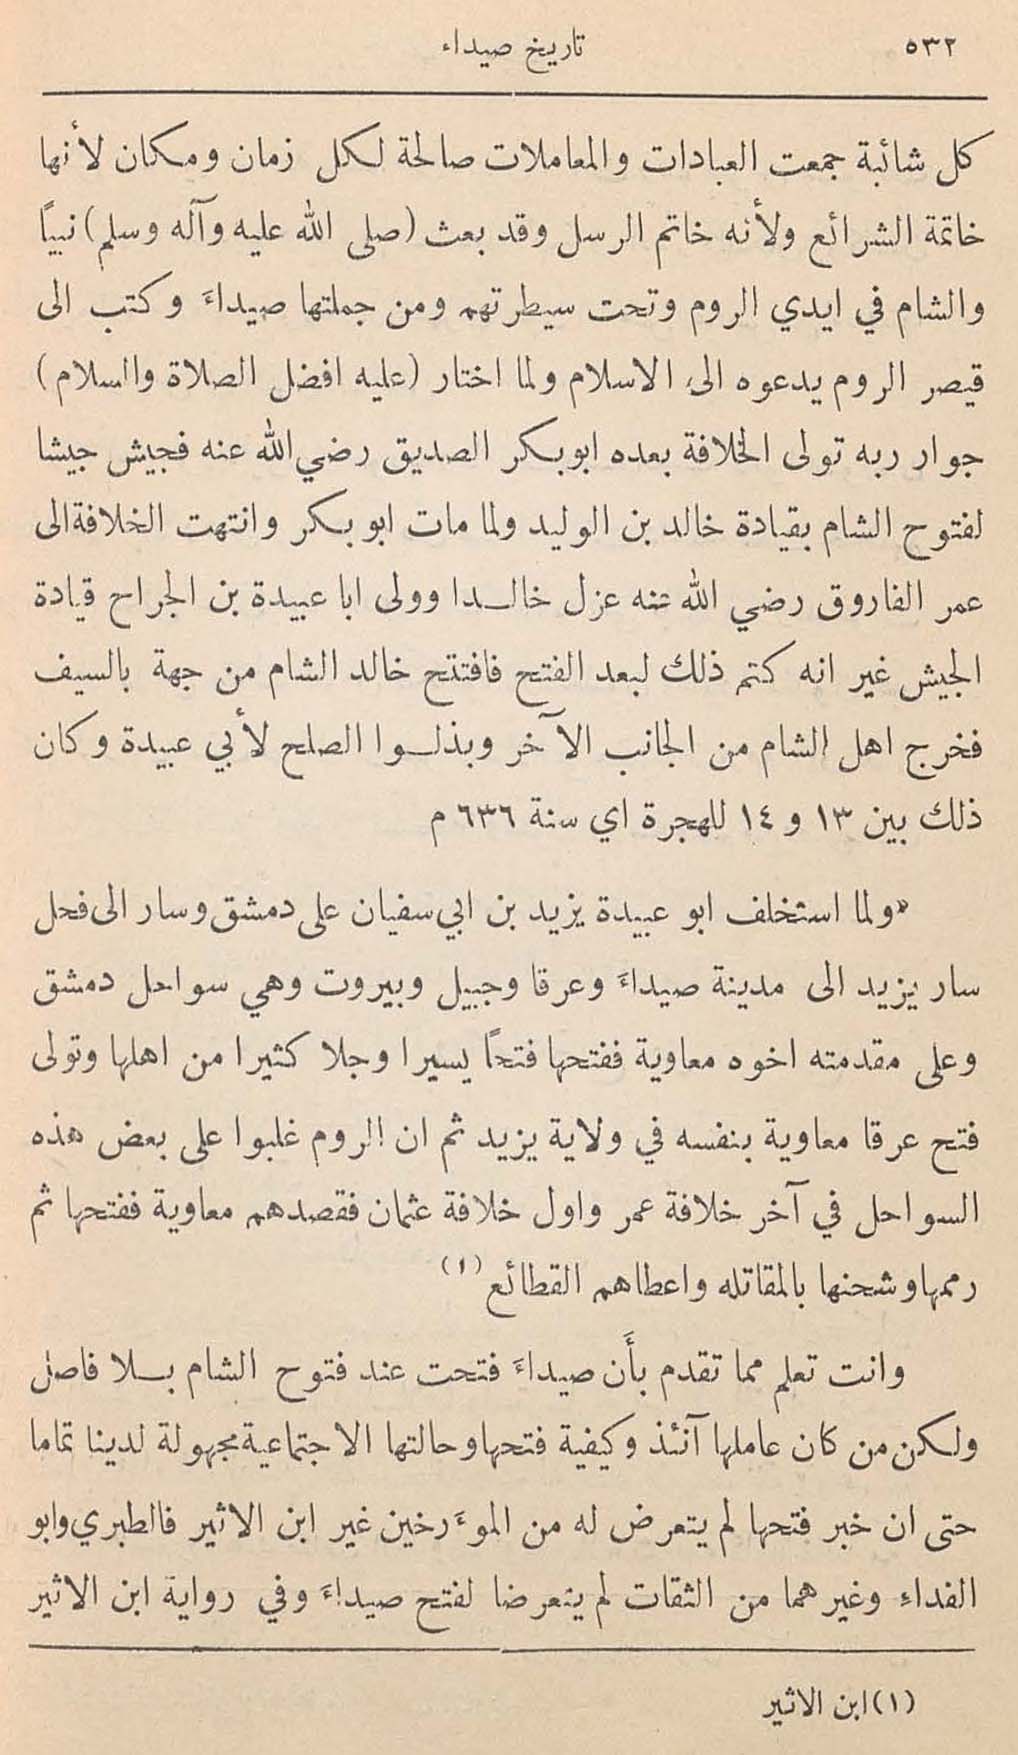 ٥٣٢
تاريخ صيداء
كل شائبة جمعت العبادات والمعاملات صالحة لكل زمان ومكان لأنها
خاتمة الشرائع ولأنه خاتم الرسل وقد بعث (صلى الله عليه وآله وسلم) نبيًا
والشام في ايدي الروم وتحت سيطرتهم ومن جملتها صيداءَ وكتب الى
قيصر الروم يدعوه الى الاسلام ولما اختار (عليه افضل الصلاة والسلام)
جوار ربه تولى الخلافة بعده ابو بكر الصديق رضي الله عنه فجيش جيشا
لفتوح الشام بقيادة خالد بن الوليد ولما مات ابو بكر وانتهت الخلافة الى
عمر الفاروق رضي الله عنه عزل خالدا وولى ابا عبيدة بن الجراح قيادة
الجيش غير انه كتم ذلك لبعد الفتح فافتتح خالد الشام من جهة بالسيف
فخرج اهل الشام من الجانب الآخر وبذلوا الصلح لأبي عبيدة وكان
ذلك بين ١٣ و ١٤ للهجرة اي سنة ٦٣٦ م
«ولما استخلف ابو عبيدة يزيد بن ابي سفيان على دمشق وسار الى فحل
سار يزيد الى مدينة صيداءَ وعرقا وجبيل وبيروت وهي سواحل دمشق
وعلى مقدمته اخوه معاوية ففتحها فتحًا يسيرا وجلا كثيرا من اهلها وتولى
فتح عرقا معاوية بنفسه في ولاية يزيد ثم ان الروم غلبوا على بعض هذه
السواحل في آخر خلافة عمر واول خلافة عثمان فقصدهم معاوية ففتحها ثم
رممها وشحنها بالمقاتله واعطاهم القطائع (١)
وانت تعلم مما تقدم بأَن صيداءَ فتحت عند فتوح الشام بلا فاصل
ولكن من كان عاملها آنئذ وكيفية فتحها وحالتها الاجتماعية مجهولة لدينا تماما
حتى ان خبر فتحها لم يتعرض له من الموءَرخين غير ابن الاثير فالطبري وابو
الفداءِ وغيرهما من الثقات لم يتعرضا لفتح صيداءَ وفي رواية ابن الاثير
(١) ابن الاثير